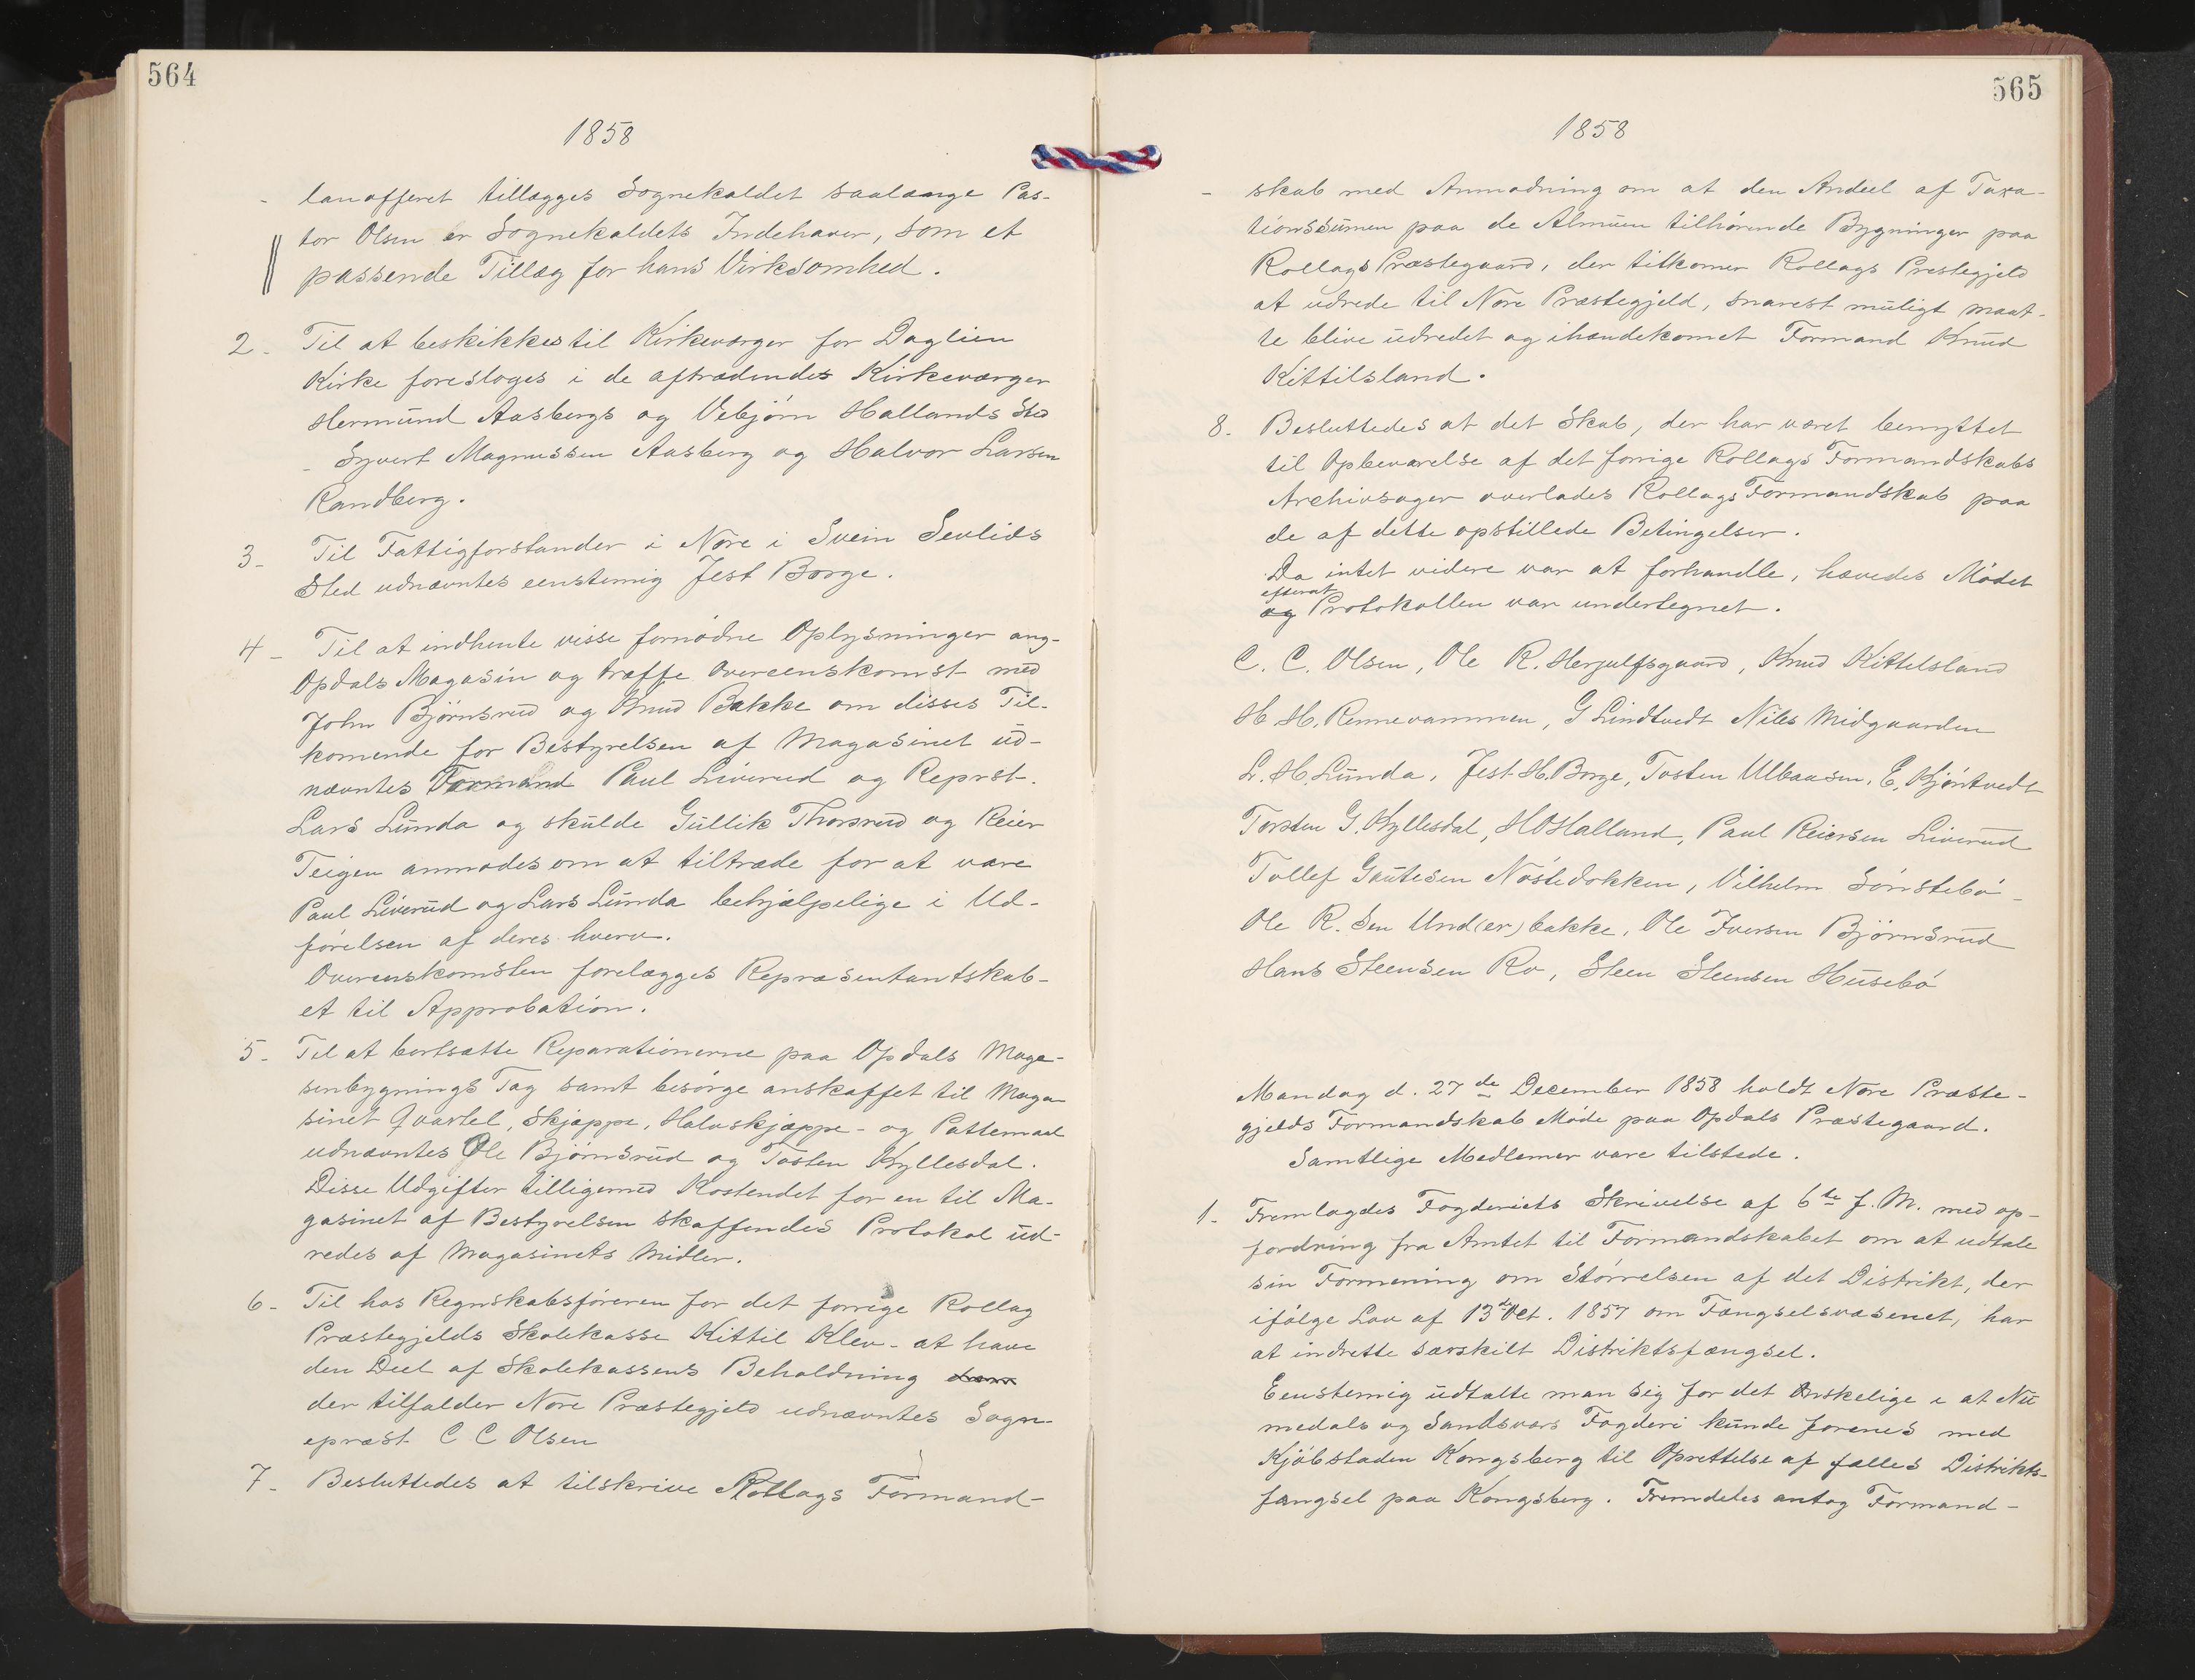 564
1858
- lanofferet tillægges Sognekaldet saalænge Pas-
tor Olsen er Sognekaldets Indehaver, som et
passende Tillæg for hans Virksomhed.
2- Til at beskikkes til Kirkeværger for Daglien
Kirke foresloges i de aftrædendes Kirkeværger
Hermund Aasbergs og Vebjörn Hallands Sted
- Syvert Magnussen Aasberg og Halvor Larsen
Randberg.
3- Til Fattigforstander i Nore i Svein Sevlids
Sted udnævntes eenstemig Jest Borge.
4- Til at indhente visse fornødne Oplysninger ang-
Opdals Magasin og træffe Overeenskomst med
John Björnsrud og Knud Bakke om disses Til-
komende for Bestyrelsen af Magasinet ud-
nævntes Formand Paul Liverud og Reprst.
Lars Lunda og skulde Gullik Thorsrud og Reier
Teigen anmodes om at tiltræde for at være
Paul Liverud og Lars Lunda behjælpelige i Ud-
förelsen af deres hverv.
Overenskomsten forelægges Repræsentantskab-
et til Approbation.
5- Til at bortsætte Reparationerne paa Opdals Maga-
sinbygnings Tag samt besörge anskaffet til Maga-
sinet Qvartel, Skjæppe, Halvskjæppe- og Pattemaal
udnævntes Ole Björnsrud og Tosten Kyllesdal.
Disse Udgifter tilligemed Kostendet for en til Ma-
gasinet af Bestyrelsen skaffendes Protokol ud-
redes af Magasinets Midler.
6- Til hos Regnskabsföreren for det forrige Rollag
Præstegjelds Skolekasse Kittil Klev- at hæve
den Deel af Skolekassens Beholdning
der tilfalder Nore Præstegjeld udnævntes Sogn-
epræst C C Olsen
7- Besluttedes at tilskrive Rollags Formand-
565
1858
- skab med Anmodning om at den Andeel af Taxa-
tionssumen paa de Almuen tilhörende Bygninger paa
Rollags Præstegaard, der tilkomer Rollags Prestegjeld
at udrede til Nore Præstegjeld, snarest muligt maat-
te blive udredet og ihændekomet Formand Knud
Kittilsland.
8- Besluttedes at det Skab, der har været benyttet
til Opbevarelse af det forrige Rollags Formandskabs
Archivsager overlades Rollags Formandskab paa
de af dette opstillede Betingelser.
Da intet videre var at forhandle, hævedes Mödet
efterat
og Protokollen var undertegnet.
C. C. Olsen, Ole R. Herjulfsgaard, Knud Kittelsland
H. H. Rennevammen, G Lindtvedt Nils Midgaarden
L. H. Lunda, Jest H. Borge, Tosten Ulbaasen, E. Kjöntvedt
Torsten G. Kyllesdal, HOHalland, Paul Reiersen Liverud
Tollef Gautesen Nöstedokken, Vilhelm Sönstebö-
Ole R. Sen Und(er)bakke, Ole Iversen Björnsrud
Hans Steensen Ro, Steen Steensen Husebö
Mandag d. 27de December 1858 holdt Nore Præste-
gjelds Formandskab Möde paa Opdals Præstegaard.
Samtlige Medlemer vare tilstede.
1- Fremlagdes Fogderiets Skrivelse af 6te f. M. med op-
fordring fra Amtet til Formandskabet om at udtale
sin Formening om Störrelsen af det Distrikt, der
ifölge Lov af 13de Oct. 1857 om Fængselsvæsenet, har
at indrette særskilt Distriktsfængsel.
Eenstemig udtalte man sig for det Önskelige i at Nu
medals og Sandsværs Fogderi kunde forenes med
Kjöbstaden Kongsberg til Oprettelse af fælles Distrikts-
fængsel paa Kongsberg. Fremdeles antog Formand-